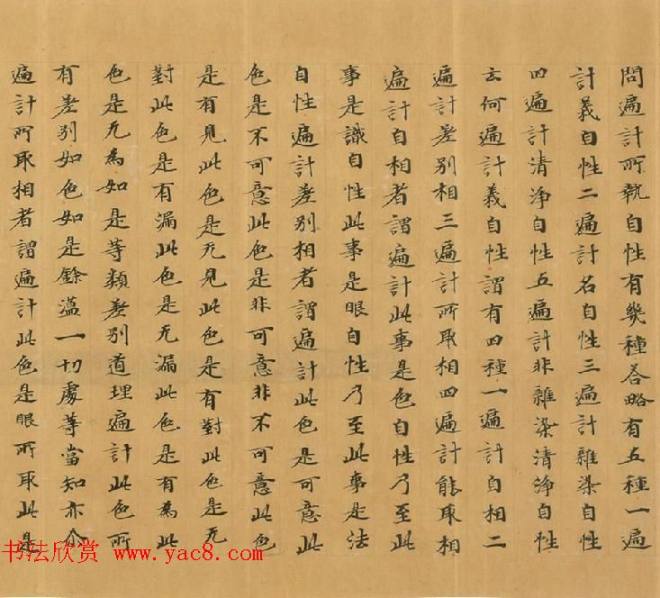 問遍計所執自性有幾種荅略有五種一遍
計義自性二遍計名自性三遍計雜染自性
四遍計清淨自性五遍計非雜染清淨自性
云何遍計義自性謂有四種一遍計自相二
遍計差別相三遍計所取相四遍計能取相
遍計自相者謂遍計此事是色自性乃至此
事是識自性此事是眼自性乃至此事是法
自性遍計差別相者謂遍計此色是可意此
色是不可意此色是非可意非不可意此色
是有見此色是无見此色是有對此色是无
對此色是有漏此色是无漏此色是有為此
色是无為如是等類差別道理遍計此色所
有差別如色如是餘蘊一切處等當知亦尒
遍計所取相者謂遍計此色是眼所取此是
书法欣赏 www.yac8.com